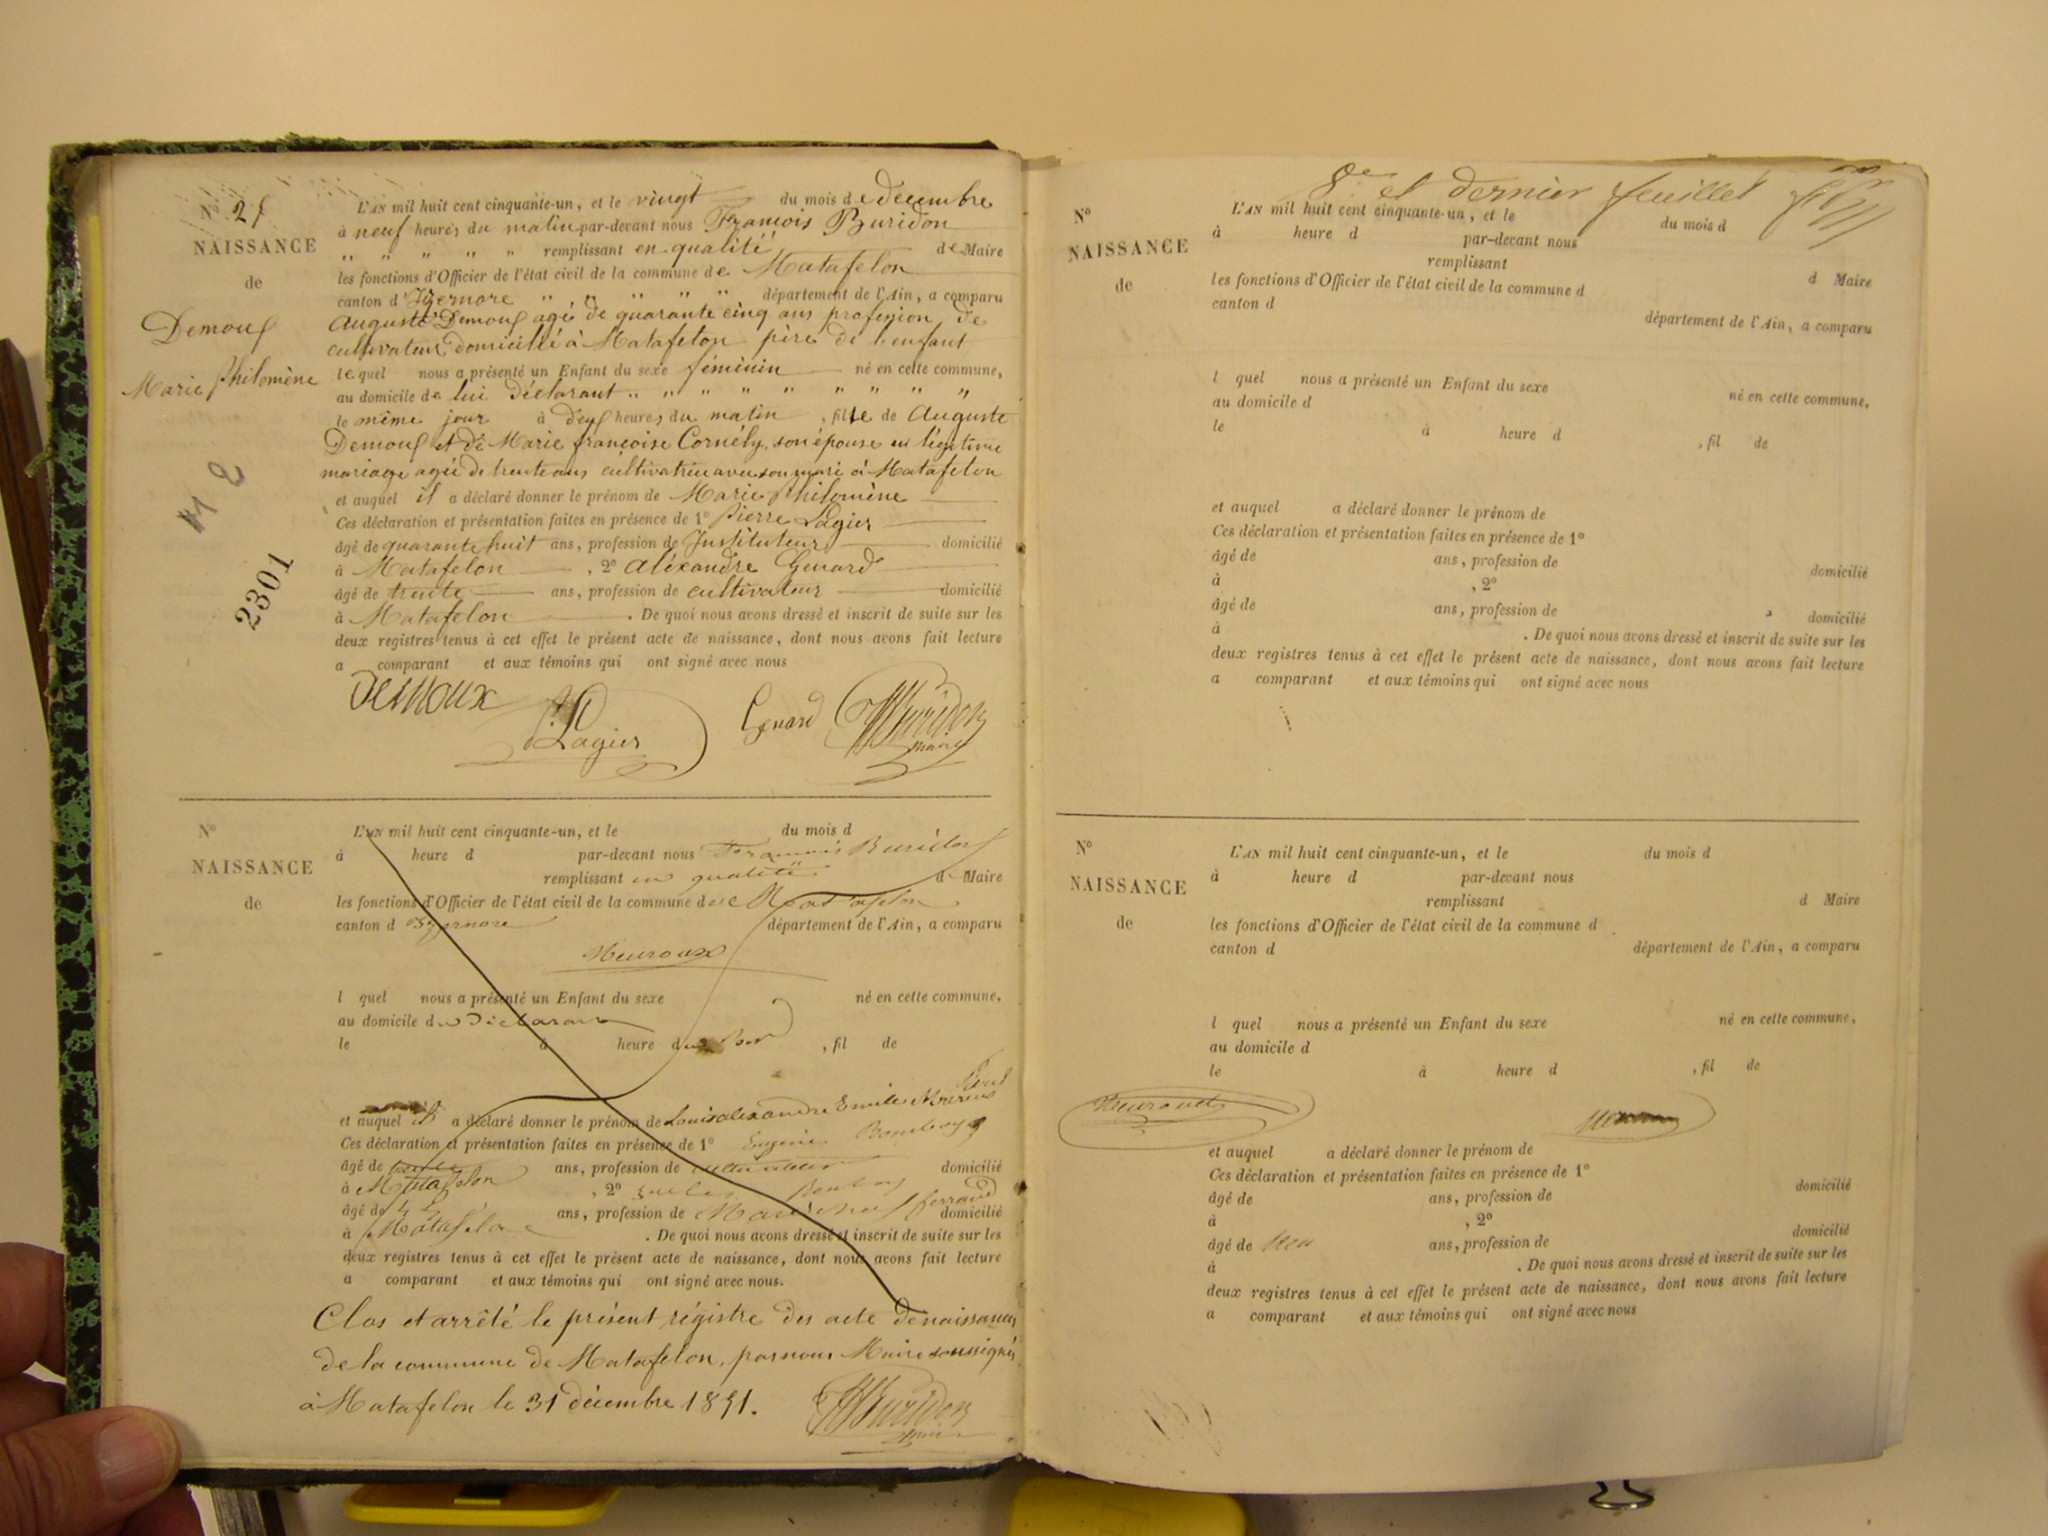 N° 27
NAISSANCE
de
Demoux
Marie philomène
2301
L'AN mil huit cent cinquante-un, et le vingt du mois de decembre
à neuf heures du matin par-devant nous François Buridon
" " " " " remplissant en qualité de Maire
les fonctions d'Officier de l'état civil de la commune de Matafelon
canton d'Izernore " " " " " département de l'Ain, a comparu
Auguste Demoux agé de quarante cinq ans profession de
cultivateur domicilié à Matafelon père de l'enfant
lequel nous a présenté un Enfant du sexe féminin né en cette commune,
au domicile de lui Déclarant " " " " " " " "
le même jour à deux heures du matin, fille de Auguste
Demoux et de Marie françoise Cornély, son épouse en légitime
mariage agée de trente ans cultivatrice avec son mari à Matafelon
et auquel il a déclaré donner le prénom de Marie philomène
Ces déclaration et présentation faites en présence de 1° Pierre Lagier
âgé de quarante huit ans, profession de Instituteur domicilié
à Matafelon, 2° aléxandre Genard
âgé de trente ans, profession de cultivateur domicilié
à Matafelon. De quoi nous avons dressé et inscrit de suite sur les
deux registres tenus à cet effet le présent acte de naissance, dont nous avons fait lecture
a comparant et aux témoins qui ont signé avec nous
Demoux
Lagier
Genard
Buridon
maire
N°
NAISSANCE
de
L'AN mil huit cent cinquante-un, et le du mois d
à heure d par-devant nous François Buridon
remplissant en qualité d Maire
les fonctions d'Officier de l'état civil de la commune de Matafelon
canton d Izernore département de l'Ain, a comparu
l quel nous a présenté un Enfant du sexe né en cette commune,
au domicile du Déclarant
le à heure d , fil de
et auquel il a déclaré donner le prénom de Louis alexandre Emile
Ces déclaration et présentation faites en présence de 1° Eugène
âgé de trente ans, profession de cultivateur domicilié
à Matafelon , 2°
âgé de ans, profession de Maréchal ferrand domicilié
à Matafelon . De quoi nous avons dressé et inscrit de suite sur les
deux registres tenus à cet effet le présent acte de naissance, dont nous avons fait lecture
a comparant et aux témoins qui ont signé avec nous.
Clos et arrêté le présent régistre des acte de naissances
de la commune de Matafelon, par nous Maire soussigné
à Matafelon le 31 décembre 1851.
Buridon
maire
8e et dernier feuillet
N°
NAISSANCE
de
L'AN mil huit cent cinquante-un, et le du mois d
à heure d par-devant nous
remplissant d Maire
les fonctions d'Officier de l'état civil de la commune d
canton d département de l'Ain, a comparu
l quel nous a présenté un Enfant du sexe né en cette commune,
au domicile d
le à heure d , fil de
et auquel a déclaré donner le prénom de
Ces déclaration et présentation faites en présence de 1°
âgé de ans, profession de domicilié
à , 2°
âgé de ans, profession de domicilié
à . De quoi nous avons dressé et inscrit de suite sur les
deux registres tenus à cet effet le présent acte de naissance, dont nous avons fait lecture
a comparant et aux témoins qui ont signé avec nous
N°
NAISSANCE
de
L'AN mil huit cent cinquante-un, et le du mois d
à heure d par-devant nous
remplissant d Maire
les fonctions d'Officier de l'état civil de la commune d
canton d département de l'Ain, a comparu
l quel nous a présenté un Enfant du sexe né en cette commune,
au domicile d
le à heure d , fil de
et auquel a déclaré donner le prénom de
Ces déclaration et présentation faites en présence de 1°
âgé de ans, profession de domicilié
à , 2°
âgé de ans, profession de domicilié
à . De quoi nous avons dressé et inscrit de suite sur les
deux registres tenus à cet effet le présent acte de naissance, dont nous avons fait lecture
a comparant et aux témoins qui ont signé avec nous